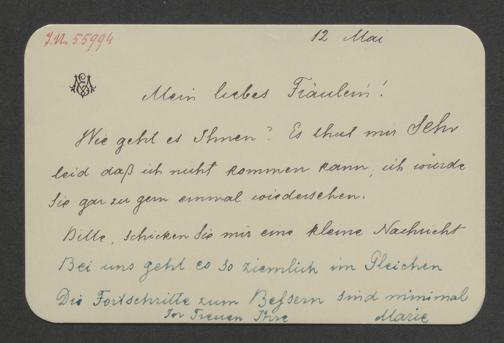 J.N. 55994
12 Mai
Mein liebes Fräulein!
Wie geht es Ihnen? Es thut mir Sehr
leid daß ich nicht kommen kann, ich würde
Sie gar zu gern einmal wiedersehen.
Bitte, schicken Sie mir eine kleine Nachricht
Bei uns geht es so ziemlich im Gleichen
Die Fortschritte zum Beßern sind minimal
In Treuen Ihre Marie